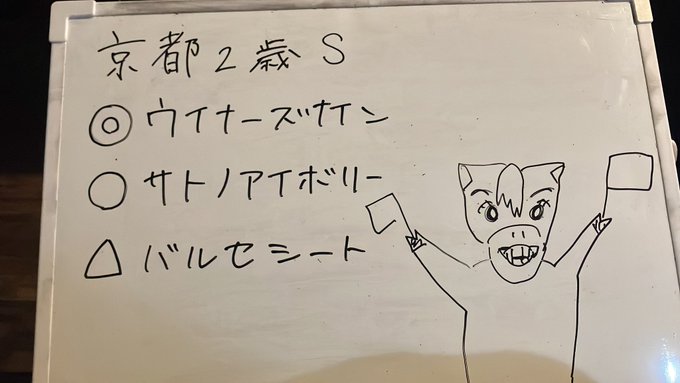 京都2歳S
◎ウイナーズナイン
○サトノアイボリー
△バルセシート